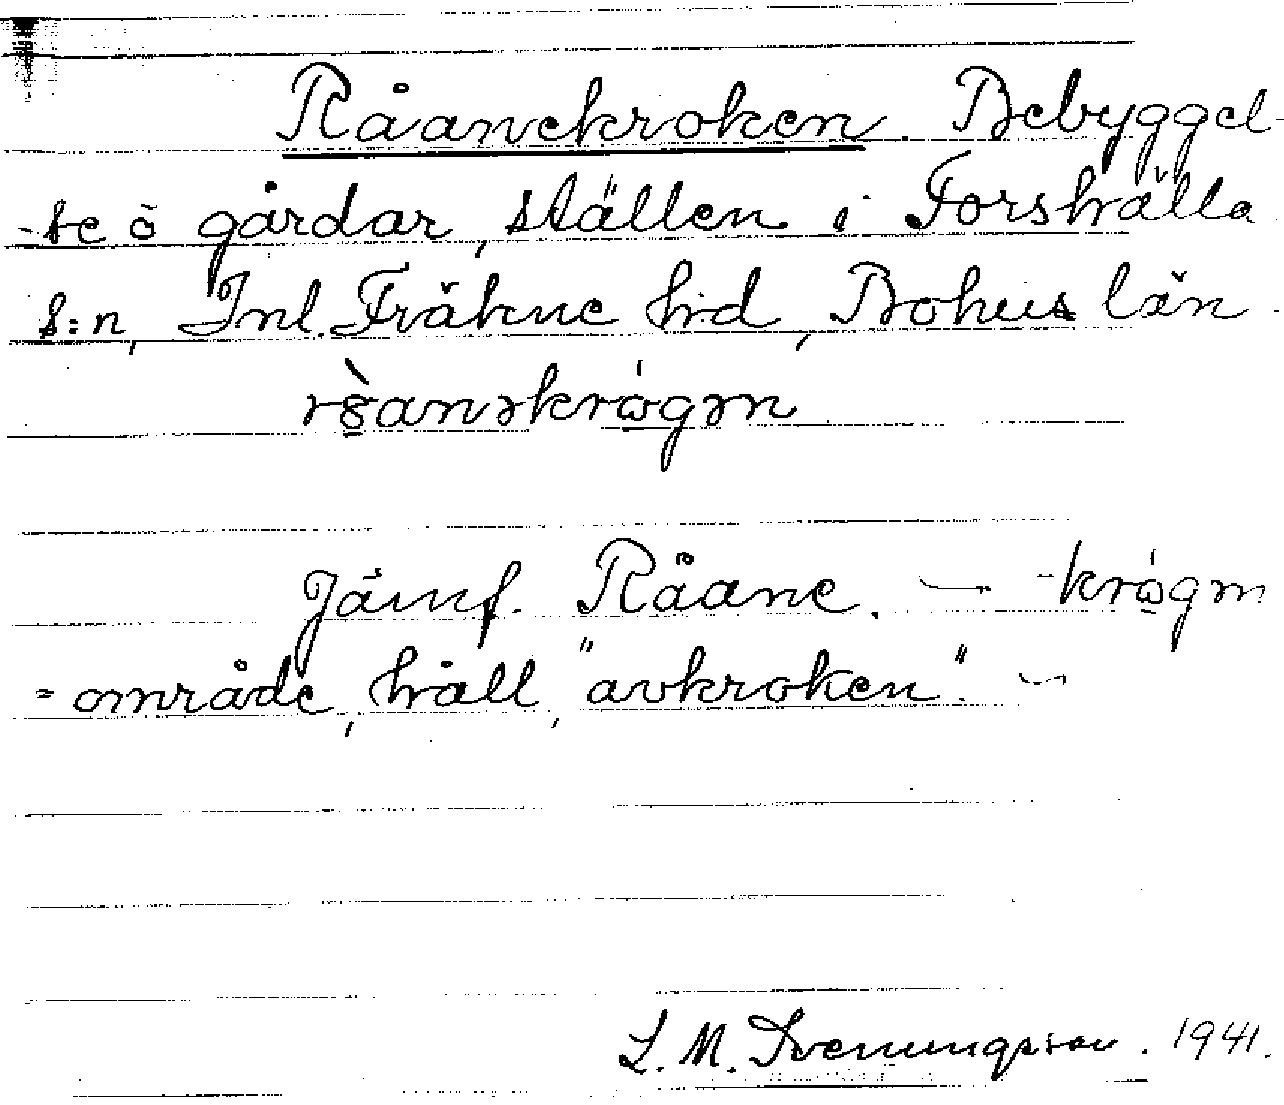 Råanekroken. Bebyggel-
-se å gårdar, ställen i Forshälla
s:n, Inl. Fräkne hd, Bohus län.
Jämf. Råane. — -krògən
= område, håll, "avkroken". —
L. M. Svenungsson. 1941.